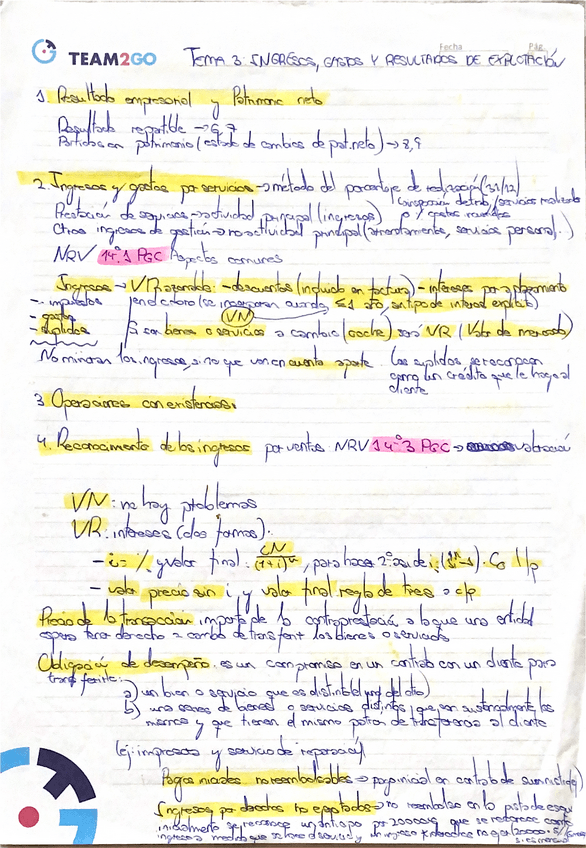 Fecha Pág.
TEAM2GO TEMA 3: INGRESOS, GASTOS Y RESULTADOS DE EXPLOTACIÓN
1. Resultado empresarial y Patrimonio neto
Resultado repartible → 6, 7
Partidas en patrimonio (estado de cambios de pat. neto) → 8, 9
2. Ingresos y gastos por servicios → método del porcentaje de realización (31/12)
servicios realizados
Prestación de servicios → actividad principal (ingresos)
Otros ingresos de gestión → no actividad principal (arrendamientos, servicios personal...)
NRV 14ª.1 PGC Aspectos comunes
Ingresos → VRazonable: - descuentos (incluido en factura) - intereses por aplazamiento
- impuestos ≤ 1 año, sin tipo de interés explícito)
- gastos VN
- suplidos Si son bienes o servicios a cambio (coche) será VR (Valor de mercado)
No minoran los ingresos, sino que van en cuenta aparte. Los suplidos se recogen
como un crédito que le hago al
cliente
3 Operaciones con existencias.
4. Reconocimiento de los ingresos por ventas NRV 14ª 3 PGC → valoración
VN: no hay problemas
VR: intereses (dos formas):
- i = % y valor final: , para hacer 2º
- valor precio sin i, y valor final regla de tres a c/p
Precio de la transacción: importe de la contraprestación a lo que una entidad
espera tener derecho a cambio de transferir los bienes o servicios
Obligación de desempeño: es un compromiso en un contrato con un cliente para
transferirle:
a) un bien o servicio que es distinto
b) una serie de bienes o servicios distintos que son sustancialmente los
mismos y que tienen el mismo patrón de transferencia al cliente
(ej: impresora y servicio de reparación)
Pagos iniciales no reembolsables → pago inicial en contrato de suministro
Ingresos por derechos no ejercitados → no reembolso en la pista de esquí
inicialmente se reconoce un anticipo por 200000